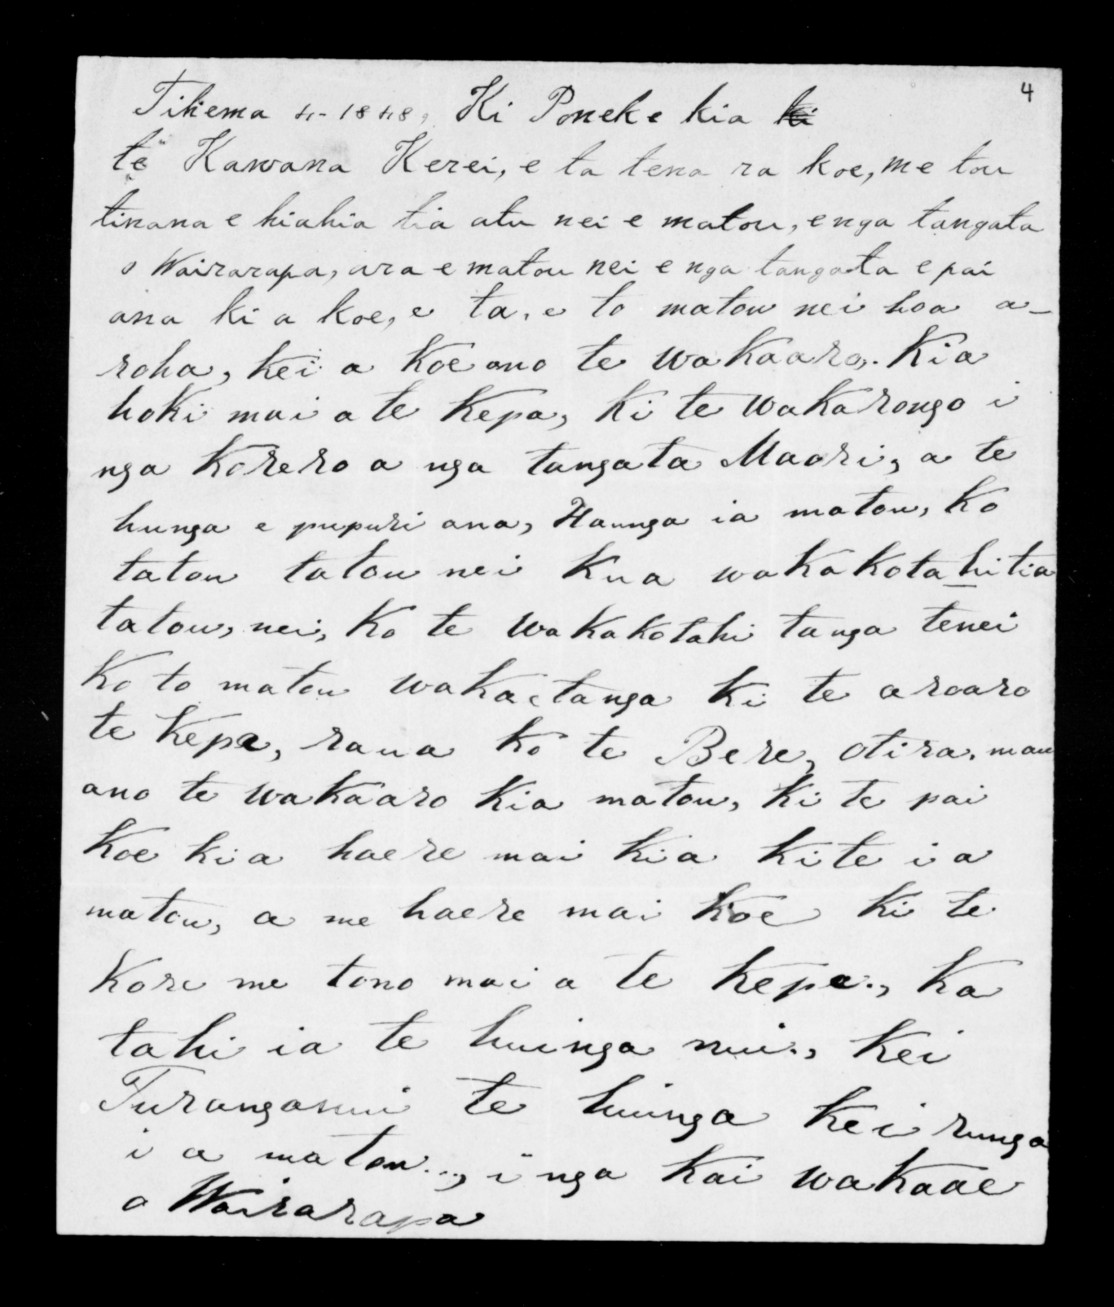 4
Tihema 4-1848, Ki Poneke kia ki
te Kawana Kerei, e ta tena ra koe, me tou
tinana e hiahia tia atu nei e matou, e nga tangata
o Wairarapa, ara e matou nei e nga tangata e pai
ana ki a koe, e ta, e to matou nei hoa a-
roha, kei a koe ano te wakaaro. Kia
hoki mai a te Kepa, ki te wakarongo i
nga korero a nga tangata Maori, a te
hunga e pupuri ana, Haunga ia matou, ko
tatou tatou nei kua wakakotahitia
tatou, nei, ko te wakakotahi tanga tenei
Ko to matou wakaetanga ki te aroaro
te Kepa, raua ko te Bere, otira, mau
ano te wakaaro kia matou, ki te pai
koe kia haere mai kia kite i a
matou, a me haere mai koe ki te
kore me tono mai a te Kepa., Ka
tahi ia te huinga nui., Kei
Turanganui te huinga kei runga
i a matou..., i nga kai wakaae
o Wairarapa